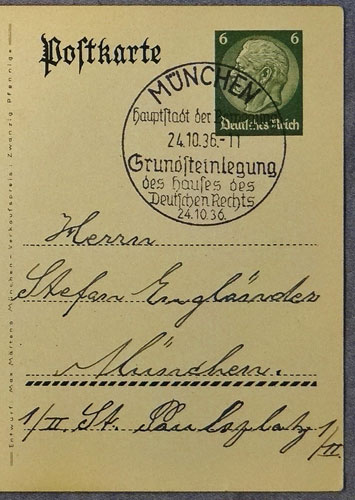 Postkarte
6 6
Deutsches Reich
MÜNCHEN
Hauptstadt der
24.10.36.-11
Grundsteinlegung
des Hauses des
Deutschen Rechts
24.10.36.
Herrn
Stefan Engländer
München.
1/II St. Paulsplatz 1/II
Entwurf: Max Martens München - Verkaufspreis: Zwanzig Pfennige